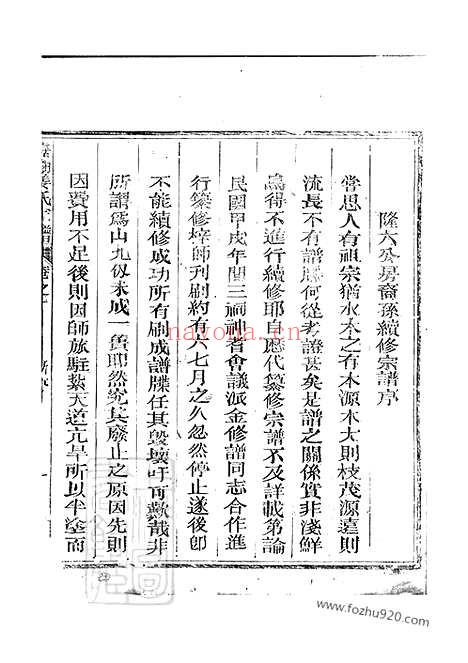 隆六公房裔孫續修宗譜序
嘗思人有祖宗猶水木之有本源木大則枝茂源遠則
流長不有譜牒何從考證甚矣是譜之關係實非淺鮮
為得不進行續修耶自應代纂修宗譜不及詳載第論
民國甲戌年間三祠祠者會議派金修譜同志合作進
行築修梓師刋刷約有六七月之久忽然停止遂後卽
不能續修成功所有刷成譜牒任其毀壞吁可歎哉非
所謂為山九仭未成一簣卽然究其廢止之原因先則
因費用不足後則因師旅駐紮天道亢旱所以半塗而
姜氏宗譜 卷之一
nayona.cn
www.fozhu920.com